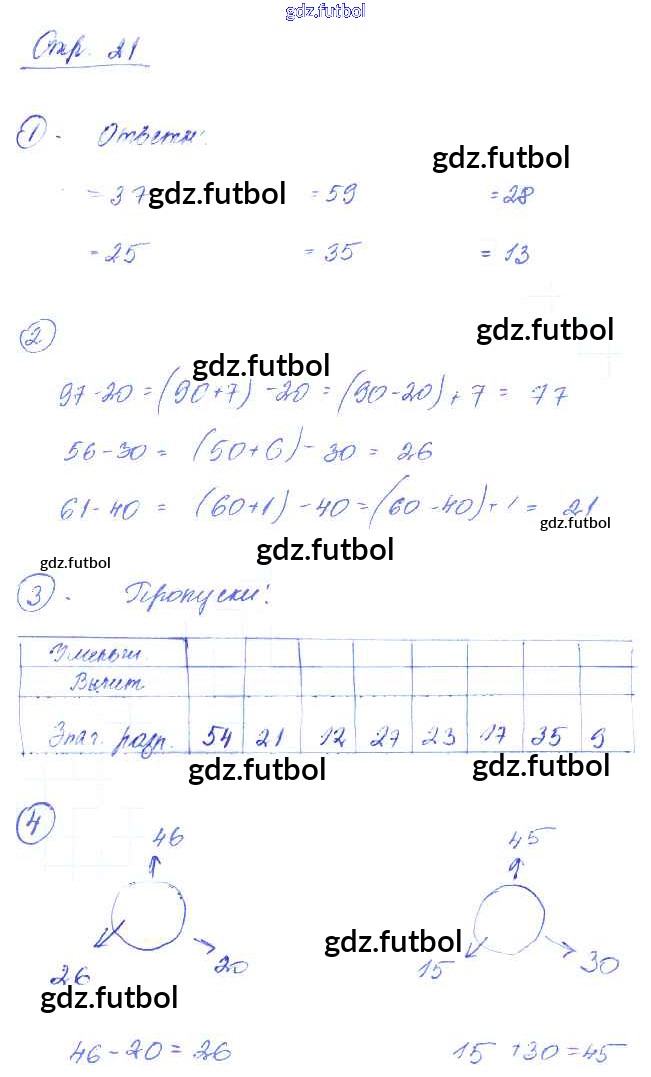 gdz.futbol
Стр. 21
1. Ответы:
gdz.futbol
= 37 gdz.futbol = 59 = 28
= 25 = 35 = 13
2
gdz.futbol
gdz.futbol
97-20 = (90+7) -20 = (90-20) + 7 = 77
56-30 = (50+6) - 30 = 26
61-40 = (60+1) - 40 = (60-40) + 1 = 21
gdz.futbol
gdz.futbol
gdz.futbol
3. Пропуски:
Уменьш.
Вычит
Знач. разн. 54 21 12 27 23 17 35 9
gdz.futbol gdz.futbol
4
46 45
gdz.futbol
26 20 15 30
gdz.futbol
46-20 = 26 15 +30 = 45